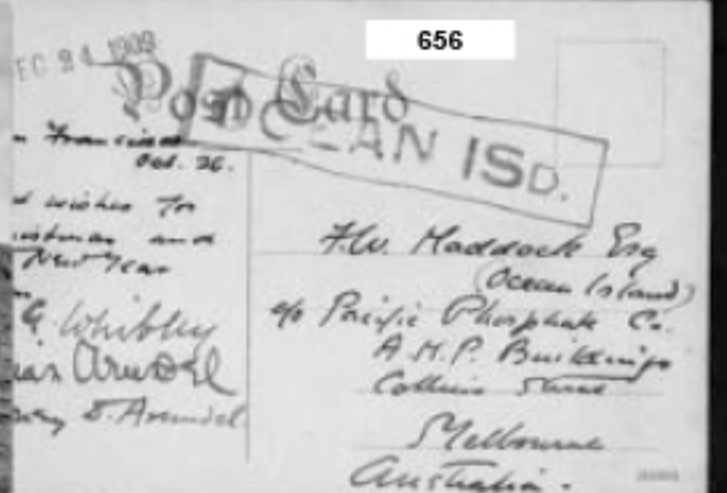 656
EC 24 1909
Post Card
OCEAN ISD.
n Francisco
Oct. 26.
d wishes for
istmas and
New Year
G. Whibley
Arundel
D. Arundel
F.W. Maddock Esq
(Ocean Island)
c/o Pacific Phosphate Co.
A.M.P. Buildings
Collins Street
Melbourne
Australia.